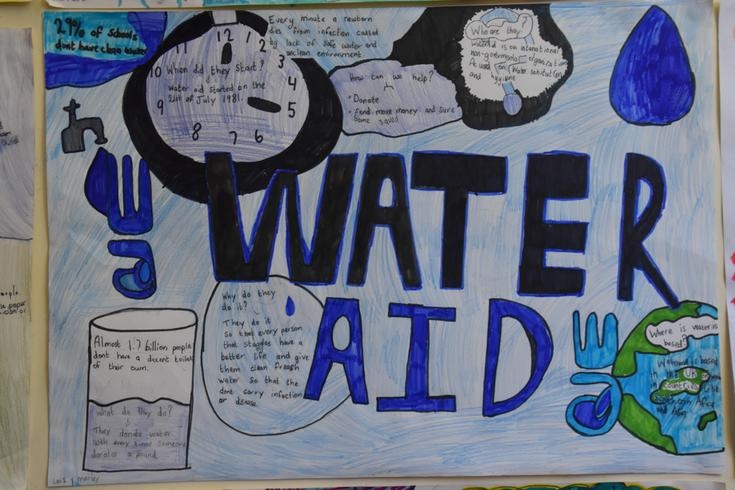 29% of schools
dont have clean water
12 1 2 3 4 5 6 7 8 9 10 11
When did they start?
Water aid started on the
21st of July 1981.
Every minute a newborn
dies from infection caused
by lack of safe water and
unclean environment
How can we help?
• Donate
• Send more money and sure
some squad
Who are they?
WaterAid is an international
non-governmental organization
focused on Water sanitation
and hygiene
WATER
AID
Why do they
do it?
They do it
so that every person
that staggles have a
better life and give
them clean freash
water so that the
dont carry infection
or disease
Almost 1.7 billion people
dont have a decent toilet
of their own.
What do they do?
They donate water.
With every time someone
donates a pound
Where is water is
based?
Wateraid is based
in the UK
in countries like
Southern Africa
and Asia
Lois y marley